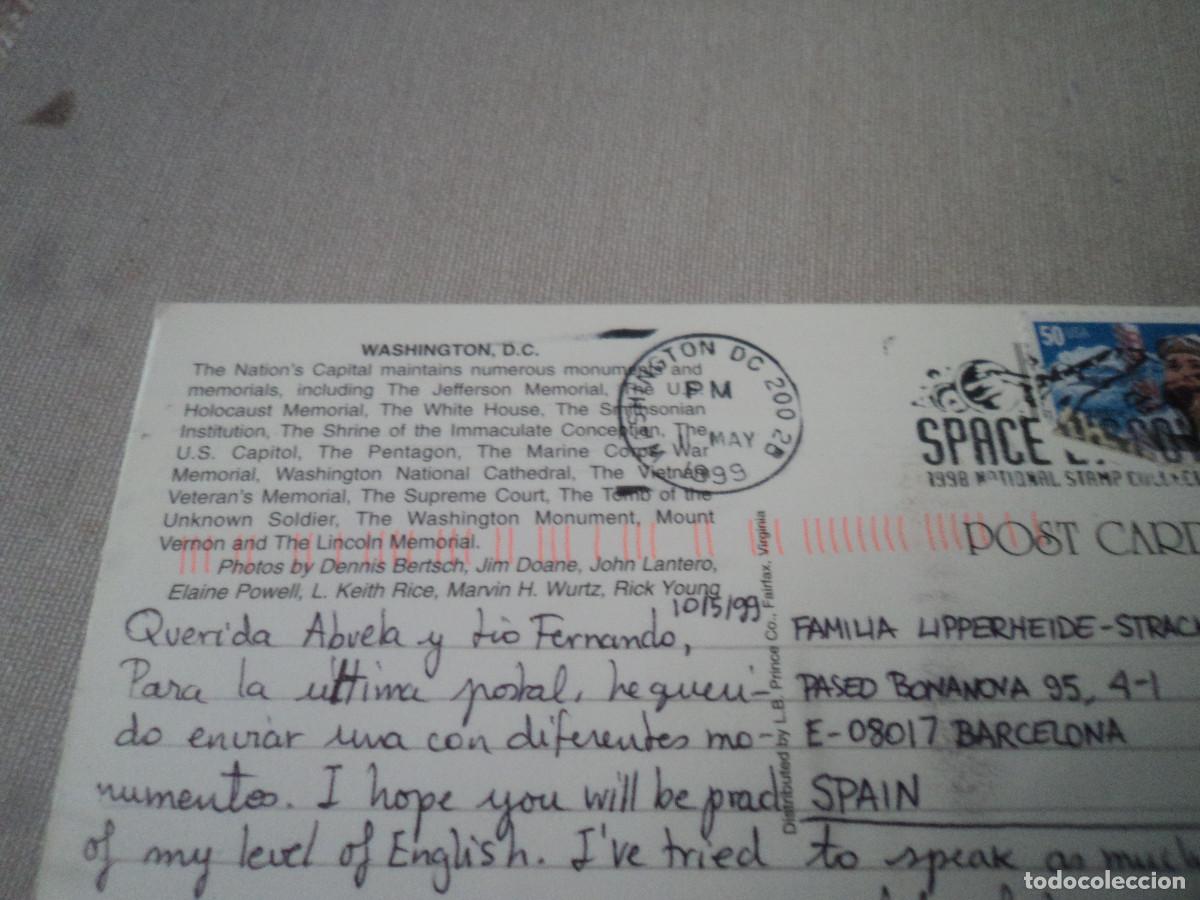 WASHINGTON, D.C.
The Nation's Capital maintains numerous monuments and
memorials, including The Jefferson Memorial, The U.S.
Holocaust Memorial, The White House, The Smithsonian
Institution, The Shrine of the Immaculate Conception, The
U.S. Capitol, The Pentagon, The Marine Corps War
Memorial, Washington National Cathedral, The Vietnam
Veteran's Memorial, The Supreme Court, The Tomb of the
Unknown Soldier, The Washington Monument, Mount
Vernon and The Lincoln Memorial.
Photos by Dennis Bertsch, Jim Doane, John Lantero,
Elaine Powell, L. Keith Rice, Marvin H. Wurtz, Rick Young
WASHINGTON DC 200 2B
PM
11 MAY
1999
50 USA
SPACE
1998 NATIONAL STAMP
POST CARD
Distributed by L.B. Prince Co., Fairfax, Virginia
10/5/99
Querida Abuela y tío Fernando,
Para la última postal, he queri-
do enviar una con diferentes mo-
numentos. I hope you will be prad
of my level of English. I've tried to speak as much
FAMILIA LIPPERHEIDE-STRACK
PASEO BONANOVA 95, 4-1
E-08017 BARCELONA
SPAIN
todocoleccion